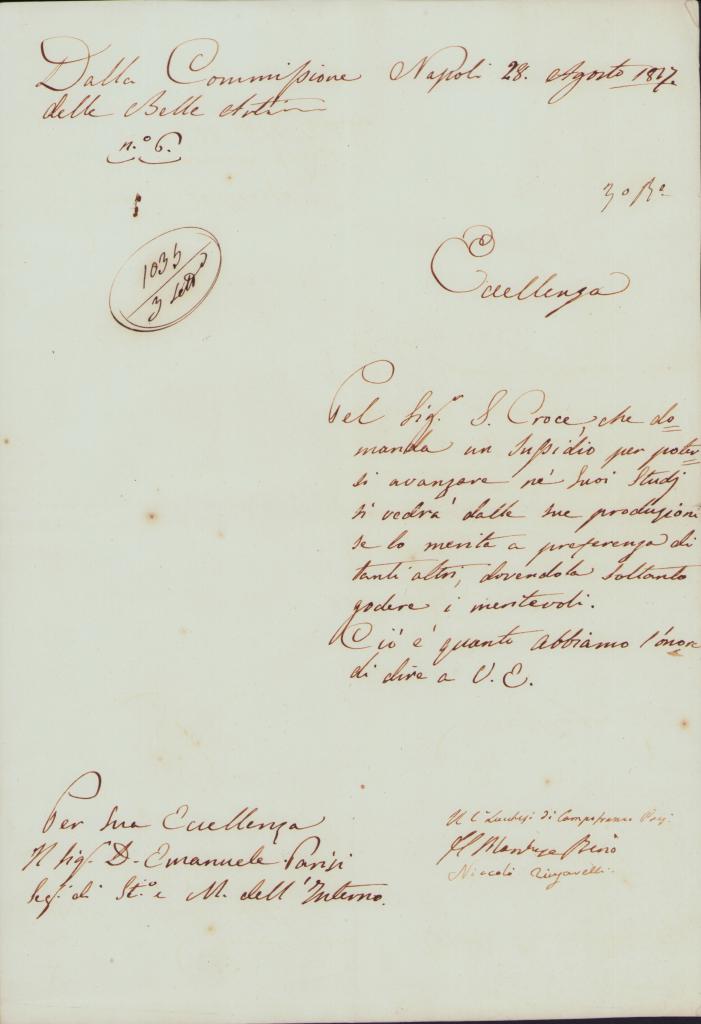 Dalla Commissione Napoli 28. Agosto 1817.
delle Belle Arti
n.º 6.
3º
Eccellenza
1035
3
Pel Sig.r S. Croce, che do=
manda un Sussidio per poter=
si avanzare ne' suoi Studj
si vedrà dalle sue produzioni
se lo merita a preferenza di
tanti altri, dovendola soltanto
godere i meritevoli.
Ciò è quanto abbiamo l'onore
di dire a V. E.
Per Sua Eccellenza
Il Sig.r D. Emanuele Parisi
Seg.º di St.º e M. dell'Interno.
Lucchesi di Campofranco
Il Marchese
Niccolò Zingarelli